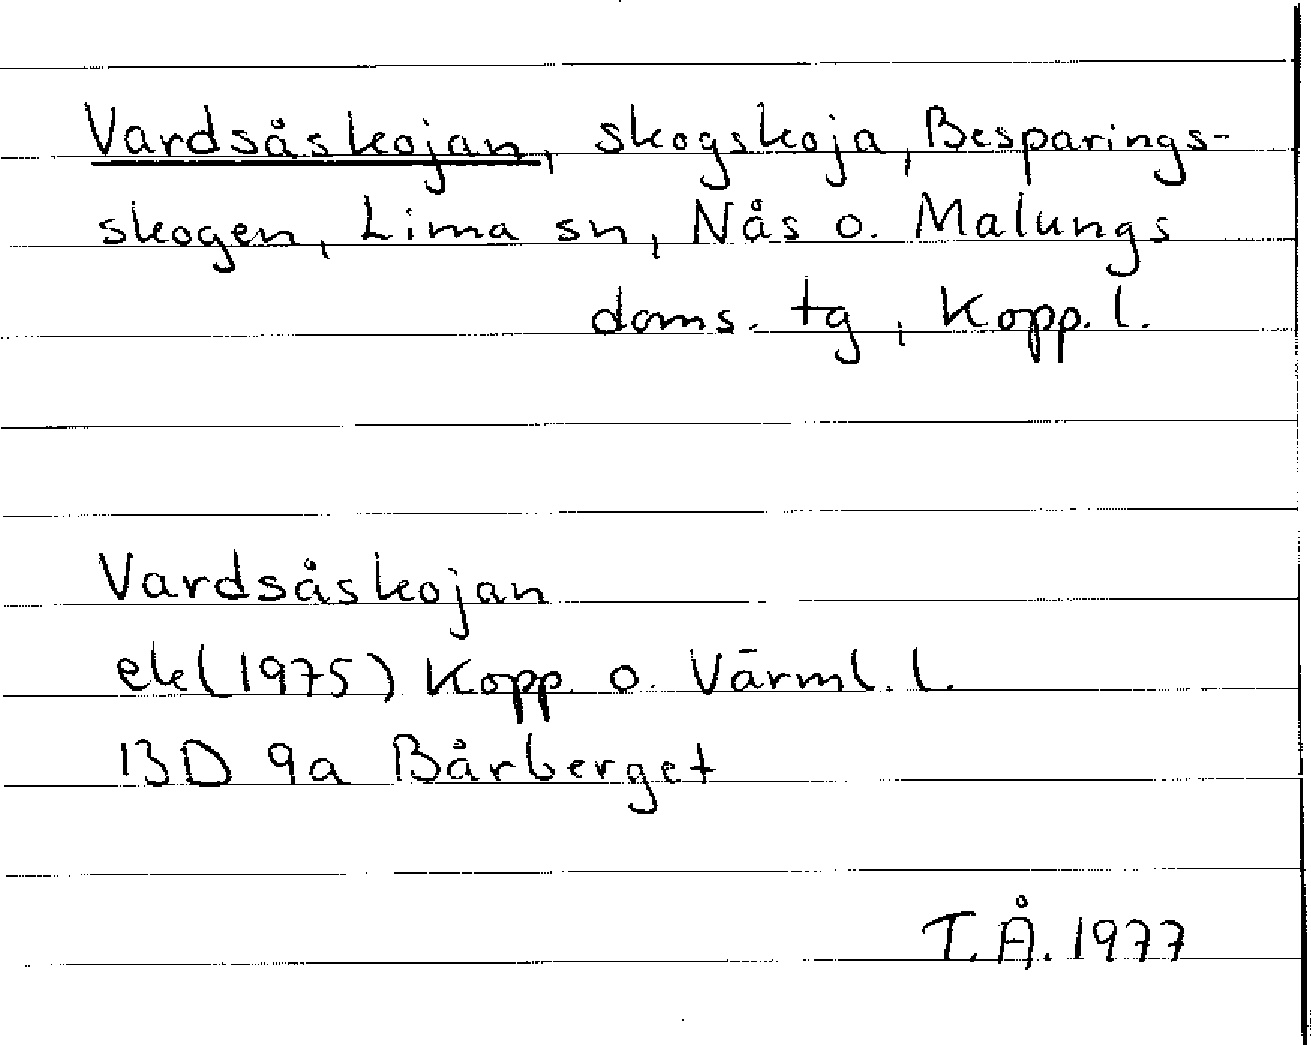 Vardsåskojan, skogskoja, Besparings-
skogen, Lima sn, Nås o. Malungs
doms. tg, Kopp. l.
Vardsåskojan
ek (1975) Kopp. o. Värml. l.
13D 9a Bårberget
T.Å. 1977